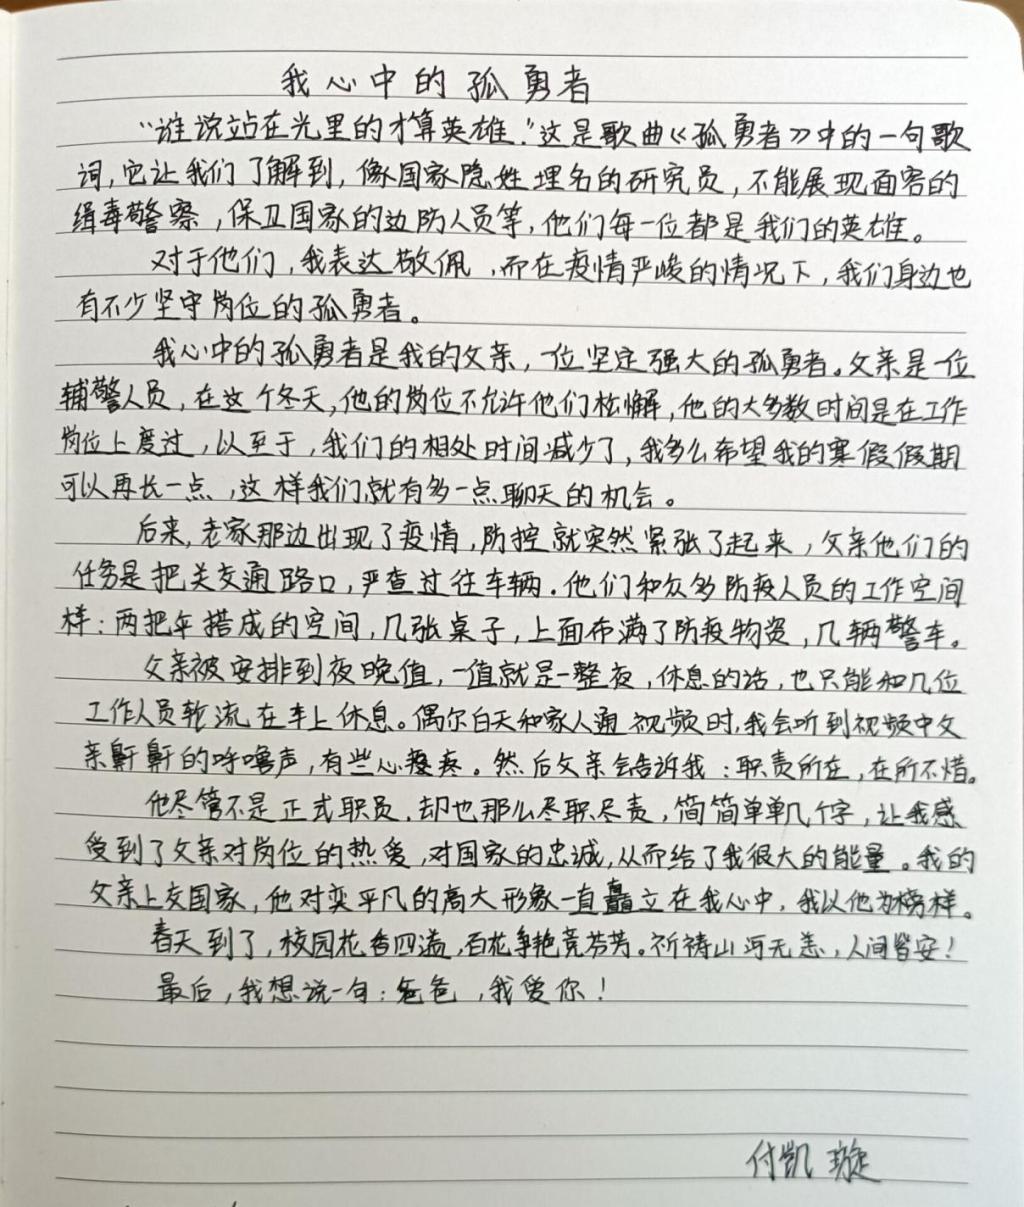 我心中的孤勇者
“谁说站在光里的才算英雄.”这是歌曲《孤勇者》中的一句歌
词，它让我们了解到，像国家隐姓埋名的研究员，不能展现面容的
缉毒警察，保卫国家的边防人员等，他们每一位都是我们的英雄。
对于他们，我表达敬佩，而在疫情严峻的情况下，我们身边也
有不少坚守岗位的孤勇者。
我心中的孤勇者是我的父亲，一位坚定强大的孤勇者。父亲是一位
辅警人员，在这个冬天，他的岗位不允许他们松懈，他的大多数时间是在工作
岗位上度过，以至于，我们的相处时间减少了，我多么希望我的寒假假期
可以再长一点，这样我们就有多一点聊天的机会。
后来，老家那边出现了疫情，防控就突然紧张了起来，父亲他们的
任务是把关交通路口，严查过往车辆.他们和众多防疫人员的工作空间
样：两把伞搭成的空间，几张桌子，上面布满了防疫物资，几辆警车。
父亲被安排到夜晚值，一值就是一整夜，休息的话，也只能和几位
工作人员轮流在车上休息。偶尔白天和家人通视频时，我会听到视频中父
亲鼾鼾的呼噜声，有些心疼。然后父亲会告诉我：职责所在，在所不惜。
他尽管不是正式职员，却也那么尽职尽责，简简单单几个字，让我感
受到了父亲对岗位的热爱，对国家的忠诚，从而给了我很大的能量。我的
父亲上交国家，他对奕平凡的高大形象一直矗立在我心中，我以他为榜样。
春天到了，校园花香四溢，百花争艳竞芬芳。祈祷山河无恙，人间皆安！
最后，我想说一句：爸爸，我爱你！
付凯璇